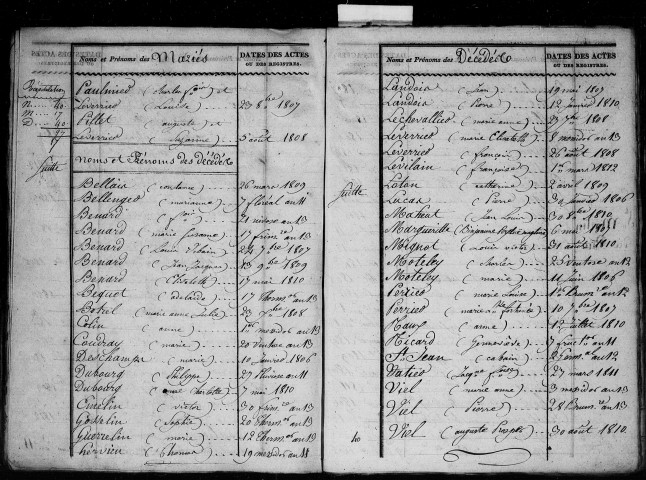 Noms et Prénoms des Mariés
DATES DES ACTES
OU DES REGISTRES.
Récapitulation
N. 40
M. 17
D. 40
97
Paulmier (Charles fois) et
Leverrier (Louise) 23 8bre 1807
Pillet (auguste) et
Leverrier (Suzanne) 5 août 1808
Suitte
Noms et Prénoms des décédés
Bellais (constance) 26 mars 1809
Bellenger (marianne) 7 floréal an 11
Benard (fois) 21 nivose an 13
Benard (marie Susanne) 17 frim.re an 13
Benard (Louis Vilain) 24 7bre 1807
Benard (Jean Jacques) 13 9bre 1809
Benard (Elisabeth) 17 mai 1810
Bequet (adelaide) 17 Therm.or an 13
Botrel (marie anne Julie) 23 7bre 1808
Colin (anne) 1er messidor an 13
Coudray (marie) 20 Ventose an 13
Deschamps (marie) 10 Janvier 1806
Dubourg (Philippe) 27 Pluviose an 11
Dubourg (anne Charlotte) 7 mai 1810
Emelin (victor) 30 frim.re an 13
Gosselin (Sophie) 20 Therm.or an 13
Guerrelin (marie) 12 Therm.or an 13
hervieu (Thomas) 19 messidor an 11
Noms et Prénoms des Décédés
DATES DES ACTES
OU DES REGISTRES.
Landois (Jean) 19 mai 1807
Landois (Pierre) 12 Janvier 1810
Lechevallier (marie anne) 27 7bre 1808
Leverrier (marie Elisabeth) 8 messidor an 13
Leverrier (françois) 26 août 1808
Levilain (françoise) 1er mars 1812
Lolon (catherine) 2 avril 1809
Suitte
Lucas (Pierre) 31 Janvier 1806
Maheut (Jean Louis) 30 8bre 1810
Marguerite 6 mai
Mignot (Louis victor) 31 août 1810
Moteley (Charles) 25 Ventose an 12
Moteley (marie) 11 Juin 1806
Perrier (marie Louise) 1er Brum.re an 12
Perrier 10 7bre 1807
(anne) 12 Juillet 1810
Ricard (Genevieve) 7 fruc.or an 11
St. Jean
Vatier 27 mars 1811
Viel (marie anne) 3 messidor an 13
Viel (Pierre) 28 Brum.re an 13
40
Viel (auguste Prosper) 30 août 1810